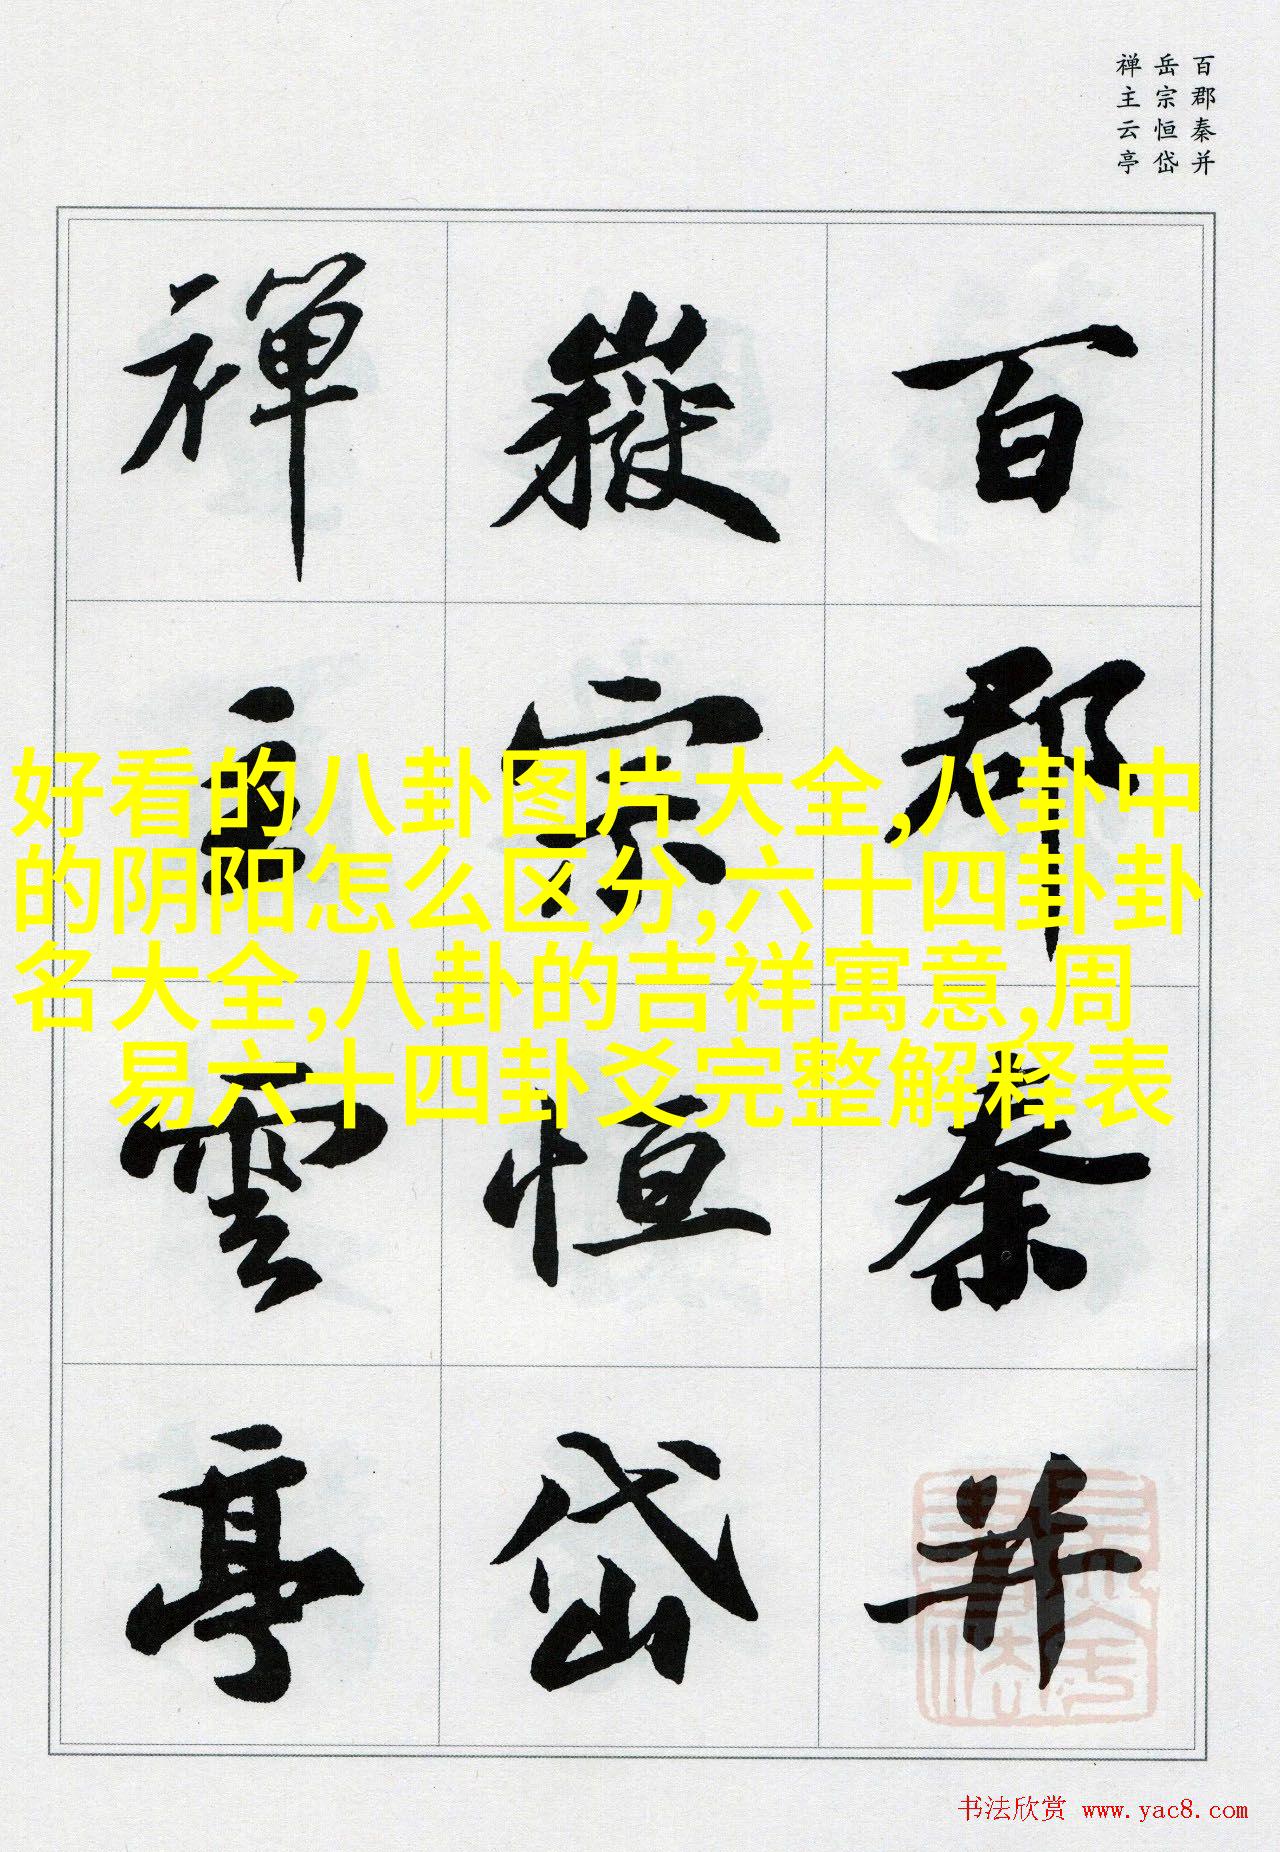 百郡秦并
岳宗恒岱
禅主云亭
百郡秦并
嶽宗恒岱
禪主雲亭
好看的八卦图片大全,八卦中
的阴阳怎么区分,六十四卦卦
名大全,八卦的吉祥寓意,周
易六十四卦爻完整解释表
书法欣赏 www.yac8.com